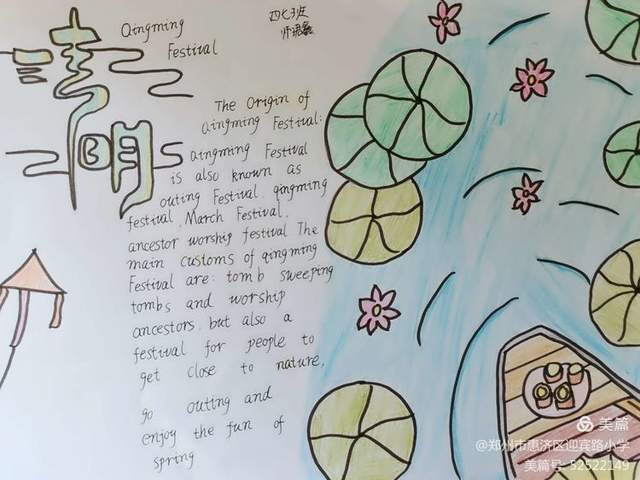 清明
Qingming
Festival
四七班
The Origin of
Qingming Festival:
Qingming Festival
is also known as
outing Festival, qingming
festival, March Festival,
ancestor worship festival The
main customs of qingming
Festival are: tomb sweeping
tombs and worship
ancestors, but also a
festival for people to
get close to nature,
go outtng and
enjoy the fun of
spring
美篇
@郑州市惠济区迎宾路小学
美篇号: 52522149